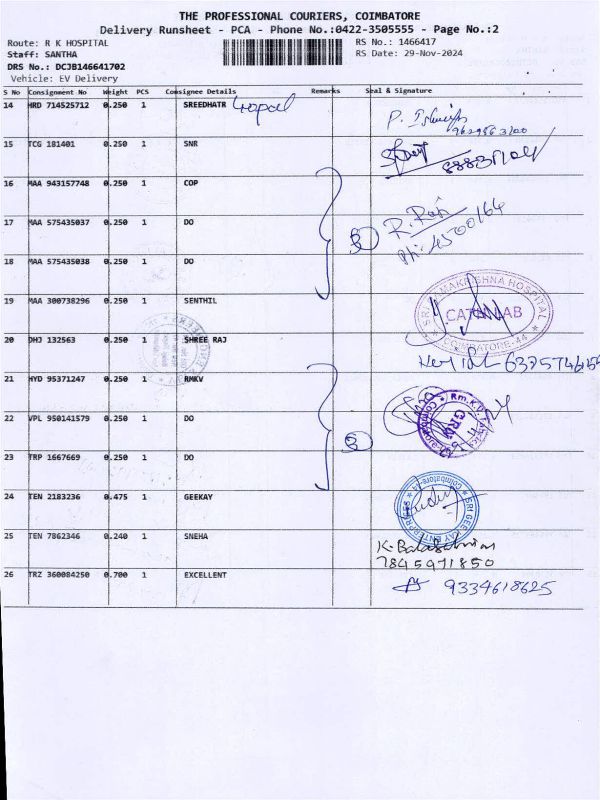 THE PROFESSIONAL COURIERS, COIMBATORE
Delivery Runsheet - PCA - Phone No.:0422-3505555 - Page No.:2
Route: R K HOSPITAL
RS No.: 1466417
Staff: SANTHA
RS Date: 29-Nov-2024
DRS No.: DCJB146641702
Vehicle: EV Delivery
S No Consignment No Weight PCS Consignee Details Remarks Seal & Signature
14 HRD 714525712 0.250 1 SREEDHATR Gopal
15 TCG 181401 0.250 1 SNR
16 MAA 943157748 0.250 1 COP
17 MAA 575435037 0.250 1 DO 3 R. Raj
18 MAA 575435038 0.250 1 DO
19 MAA 300738296 0.250 1 SENTHIL
SRI RAMAKRISHNA HOSPITAL
CATH LAB
COIMBATORE-44
20 DHJ 132563 0.250 1 SHREE RAJ
21 HYD 95371247 0.250 1 RMKV
22 VPL 950141579 0.250 1 DO 3
23 TRP 1667669 0.250 1 DO
24 TEN 2183236 0.475 1 GEEKAY
SRI GEE KAY ENTERPRISES
25 TEN 7862346 0.240 1 SNEHA
7845971850
26 TRZ 360084250 0.700 1 EXCELLENT 9334618625